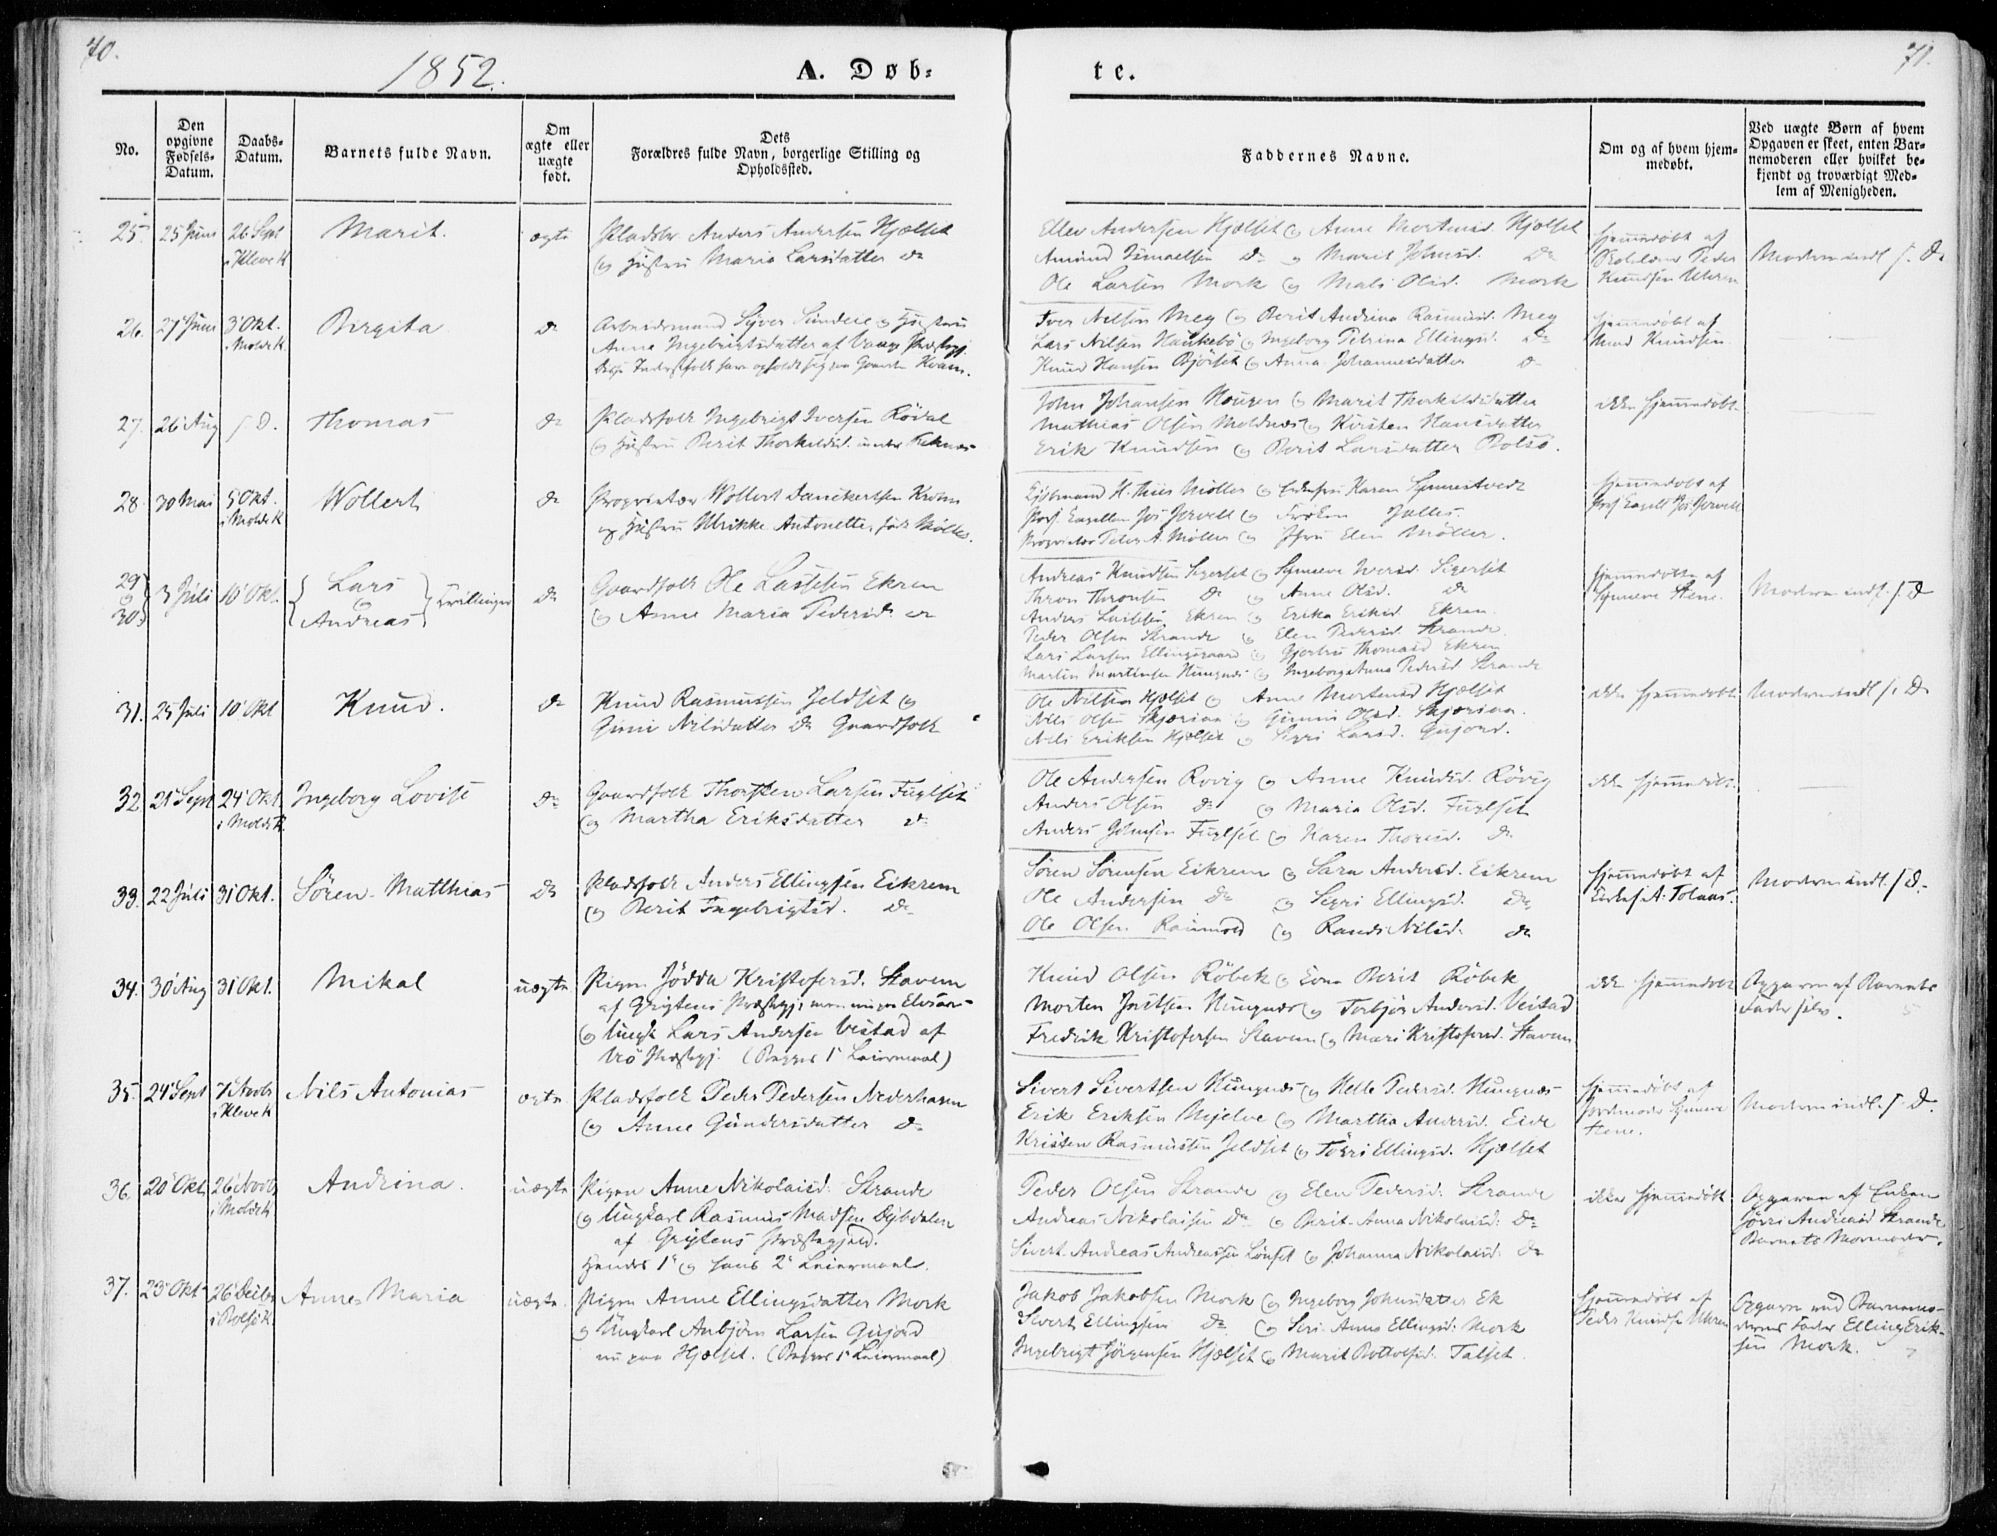 70.
1852.
A. Døb-
te.
71.
No.
Den opgivne Fødsels-Datum.
Daabs-Datum.
Barnets fulde Navn.
Om ægte eller uægte født.
Dets Forældres fulde Navn, borgerlige Stilling og Opholdssted.
Faddernes Navne.
Om og af hvem hjem-medøbt.
Ved uægte Børn af hvem Opgaven er skeet, enten Bar-nemoderen eller hvilket be-kjendt og troværdigt Med-lem af Menigheden.
25. 25 Juni 26 Sept i Kleve K Marit. ægte
Pladsbr. Anders Andersen Hjælset
og Hustru Maria Larsdatter do
Ellev Andersen Hjælset og Anne Mortensd. Hjælset
Amund Ismaelsen do og Marit Johnsd. do
Ole Larsen Mork og Mali Olsd. Mork
hjemmedøbt af
Skolelærer Peder
Knudsen Uhren
Moderen indl. s. D.
26. 27 Juni 3 Okt. i Molde K. Birgita do
Arbeidsmand Syver Sundere og Hustru
Anna Ingebrigtsdatter af Vaage Præstegj.
Iver Nilsen Meg og Berit Andrina Rasmusd. Meg
Lars Nilsen Haukebö og Ingeborg Petrina Ellingsd. do
Knud Hansen Bjørset og Anna Johannesdatter do
hjemmedøbt af
Knudsen
27. 26 Aug s. D. Thomas do
Pladsfolk Ingebrigt Iversen Röval
og Hustru Berit Thorkeldsd. under Teknæs
John Johansen Hougen og Marit Thorkeldsdatter
Mathias Olsen Moldnæs og Kirsten Hansdatter
Erik Knudsen og Berit Larsdatter Bolsö.
ikke hjemmedøbt
28. 30 Mai 5 Okt. i Molde K Wollert do
Proprietær Wollert Danckertsen Krohn
og Hustru Ulrikke Antonette, født Möller.
Kjøbmand H. Thiis Möller og Karen
Prof. Kapellan Jos. Jervell og Frøken Jalles.
Proprietær Peder A. Møller og Jfru Elen Møller.
hjemmedøbt af
Prof Kapell Jos. Jervell
29 og 30. 3 Juli 10 Okt. Lars og Andreas Tvillinger do
Gaardfolk Ole Lassesen Ekrem
og Anne Maria Pedersd. do
Andreas Knudsen Segerset og Synneve Iversd. Segerset
Thron Thronsen do og Anne Olsd. do
Anders Lassesen Ekrem og Erika Eriksd. Ekrem.
Peder Olsen Strande og Elen Pedersd. Strande.
Lars Larsen Ellingsgaard og Gjertru Thomasd Ekrem
Martin Martinsen Hungnæs og Ingeborg Anna Pedersd. Strande
hjemmedøbte af
Synneve Stene.
Moderen indl. s. D
31. 25 Juli 10 Okt Knud. do
Knud Rasmussen Jeldset og
Guni Nilsdatter do Gaardfolk
Ole Nilsen Hjælset og Anne Mortensd Hjælset
Nils Olsen Skjæviaa og Olsd. Skjæviaa.
Nils Eriksen Hjælset og Sigri Larsd. Gujord.
ikke hjemmedøbt
Moderen indl. s. D
32 21 Sept 24 Okt. i Molde K. Ingeborg Lovise do
Gaardfolk Thorsten Larsen Fuglset
og Martha Eriksdatter do
Ole Andersen Rovig og Anne Knudsd. Rövig
Anders Olsen do og Maria Olsd. Fuglset
Anders Johnsen Fuglset og Karen Thorsd. do
ikke hjemmedøbt.
33. 22 Juli 31 Okt. Sören Matthias do
Pladsfolk Anders Ellingsen Eikrem
og Berit Ingebrigtsd. do
Sören Sörensen Eikrem og Sara Andersd. Eikrem
Ole Andersen do og Segri Ellingsd. do
Ole Olsen og Randi Nilsd. do
hjemmedøbt af
A. Tolaas.
Moderen indl. s. D.
34. 30 Aug 31 Okt. Mikal uægte
Pigen Jödda Kristofersd. Stavem
af Grøtens Præstegj. men nu paa
og Ungk Lars Andersen Veistad af
Præstegj. (Begges 1' Leiermaal)
Knud Olsen Röbek og Berit Röbek
Morten Hungnæs og Torbjör Andersd. Veistad
Fredrik Kristofersen Stavem og Mari Kristofersd. Stavem
ikke hjemmedøbt
Opgaven af Barnets
Fader selv.
35. 24 Sept 7 Novbr i Kleve K Nils Antonius ægte
Pladsfolk Peder Pedersen Nederhavn
og Anne Gundersdatter do
Sivert Sivertsen Hungnæs og Helle Pedersd. Hungnæs
Erik Eriksen Mjelve og Martha Andersd. Eide
Kristen Rasmussen Jeldset og Ellingsd. Hjælset
hjemmedøbt af
Jordmoder Synneve
Stene.
Moderen indl. s. D.
36. 20 Okt. 26 Novbr i Molde K Andrina. uægte
Pigen Anne Nikolaisd. Strande
og Ungkarl Rasmus Madsen Dybdalen
af Grytens Præstegjeld.
Hendes 1' og hans 2' Leiermaal.
Peder Olsen Strande og Elen Pedersd: Strande
Andreas Nikolaisen do og Berit-Anna Nikolaisd: do
Sivert Andreas Andreassen Lönset og Johanna Nikolaisd. do
ikke hjemmedøbt
Opgaven af Enken
Andreasd Strande
Barnets Mormoder.
37. 23 Okt 26 Decbr i Bolsö K. Anne Maria uægte.
Pigen Anne Ellingsdatter Mork
og Ungkarl Anbjörn Larsen Gujord
nu paa Hjælset. (Begges 1' Leiermaal)
Jakob Jakobsen Mork og Ingeborg Johnsdatter Ek
Sivert Ellingsen do og Anna Ellingsd: Mork
Ingebrigt Jörgensen Hjælset og Marit Talset.
hjemmedøbt af
Peder Knudsen Uhren
Opgave ved Barnemo-
derens Fader Elling Erik-
sen Mork.